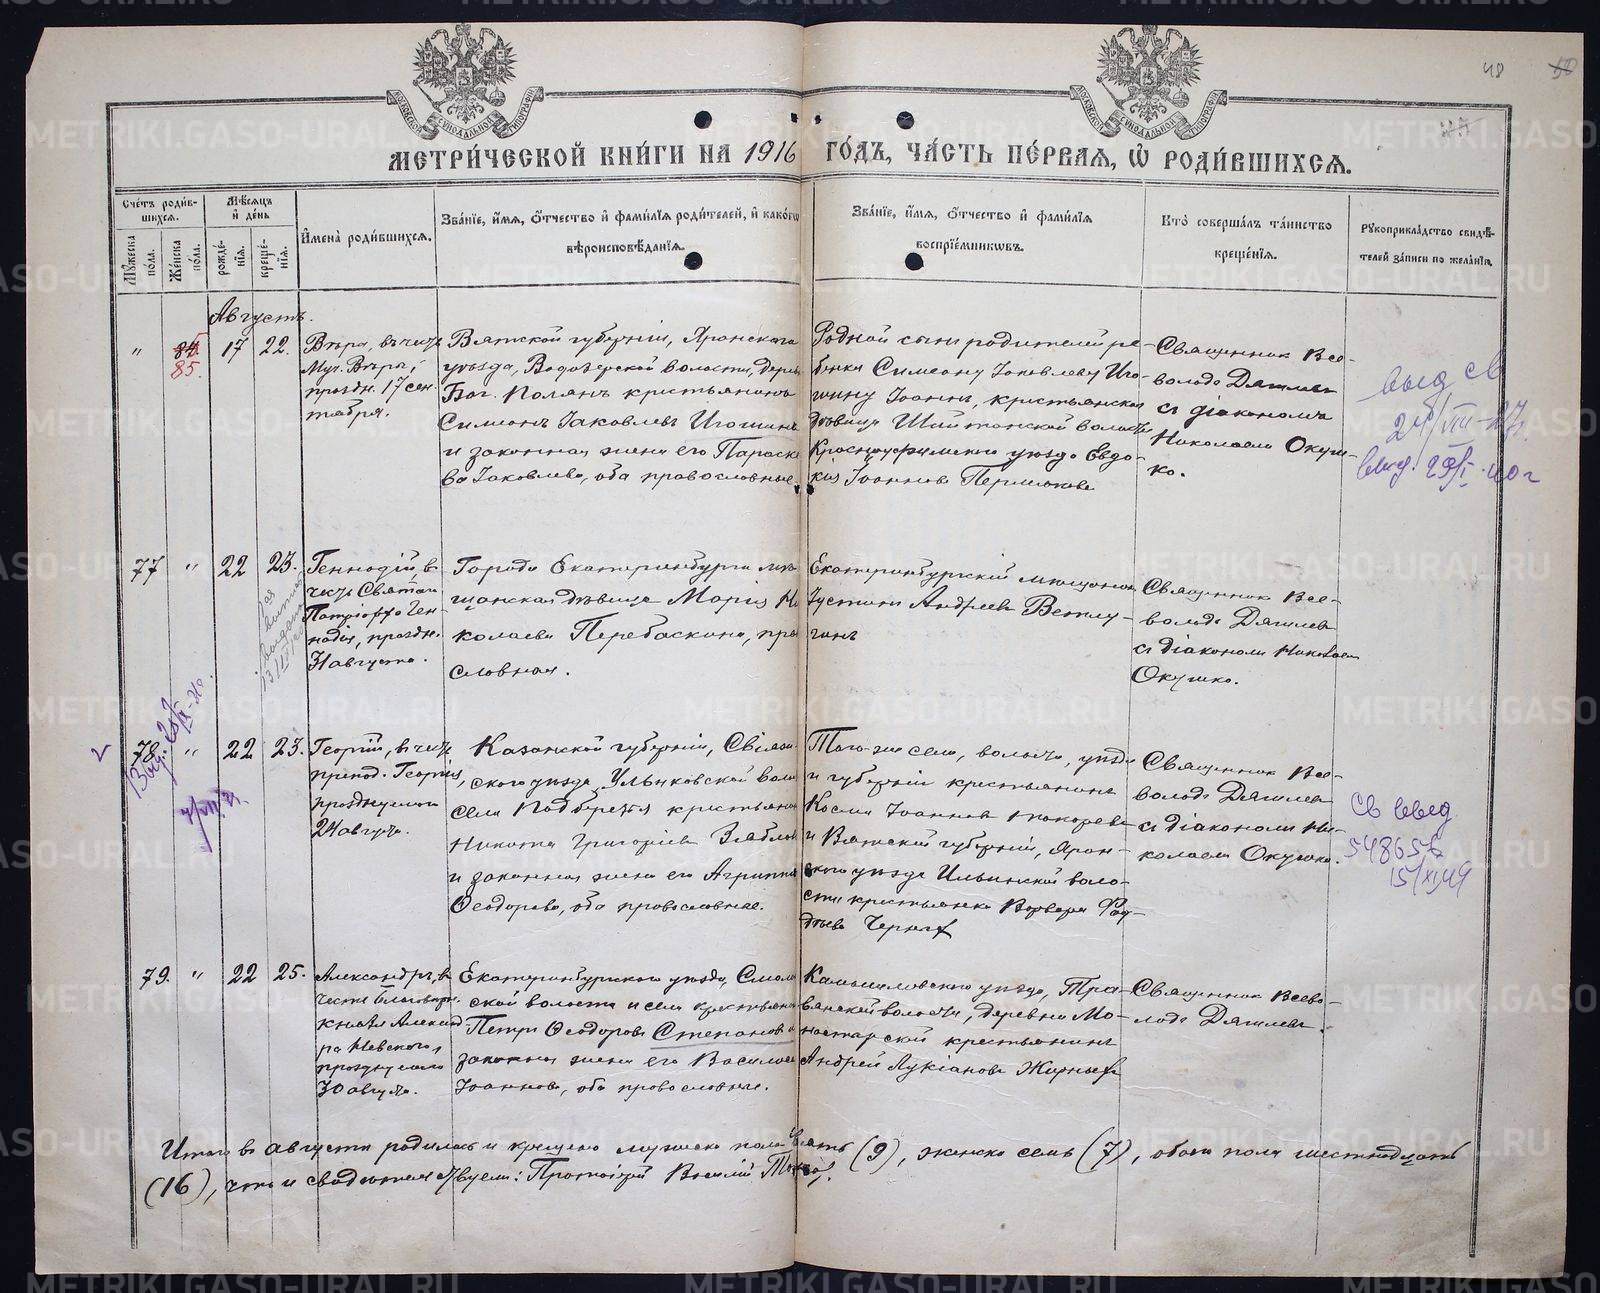 48
МЕТРИ́ЧЕСКОЙ КНИ́ГИ НА 1916 ГО́ДЪ, ЧА́СТЬ ПЕ́РВАѦ, Ѡ҆ РОДИ́ВШИХСѦ.
Сче́тъ роди́в-
шихсѧ.
Мꙋ́жеска
по́ла.
Же́нска
по́ла.
Мѣ́сѧцъ
и҆ де́нь
рожде́-
нїѧ.
креще́-
нїѧ.
И҆мена̀ роди́вшихсѧ.
Зва́нїе, и҆́мѧ, ѻ҆́тчество и҆ фами́лїѧ роди́телей, и҆ како́гѡ
вѣроисповѣ́данїѧ.
Зва́нїе, и҆́мѧ, ѻ҆́тчество и҆ фами́лїѧ
воспрїе́мникѡвъ.
Кто̀ соверша́лъ та́инство
креще́нїѧ.
Рꙋкоприкла́дство свидѣ́-
телей за́писи по жела́нїю.
Августъ.
" 85. 17 22.
Вѣра, въ честь
Муч. Вѣры,
праздн. 17 сен-
тября.
Вятской губерніи, Яранскаго
уѣзда, Водозерской волости, дерев.
Бог. Полянъ крестьянинъ
Симеонъ Іаковлевъ Игошинъ
и законная жена его Параске
ва Іаковлева, оба православные.
Родной сынъ родителей ре-
бенка Симеону Іаковлеву Иго-
шину Іоаннъ, крестьянская
дѣвица Шайтанской волости
Красноуфимскаго уѣзда Евдо-
кія Іоаннова Пермякова
Священникъ Все-
володъ Дягилевъ
съ діакономъ
Николаемъ Окуш-
ко.
выд св
24/III-27г.
выд. 29/I-40г
77 " 22 23.
Геннадій въ
честь Святаго
Патріарха Ген-
надія, праздн.
31 августа.
Города Екатеринбурга мѣ
щанская дѣвица Марія Ни
колаева Перебаскина, пра
славная.
Екатеринбургскій мѣщанинъ
Іустинъ Андреевъ Ветлу-
гинъ
Священникъ Все-
володъ Дягилевъ
съ діакономъ Николаемъ
Окушко.
78 " 22 23.
Георгій, въ честь
препод. Георгія,
празднуемаго
24 августа.
Казанской губерніи, Свіяж-
скаго уѣзда, Ульяковской воло
села Подберезья крестьянинъ
Никита Григоріевъ Зябловъ
и законная жена его Агриппина
Ѳеодорова, оба православные.
Того-же села, волости, уѣзда
и губерніи крестьянинъ
Косма Іоанновъ Токаревъ
и Вятской губерніи, Яран-
скаго уѣзда Ильинской воло-
сти крестьянка Варвара Фад-
дѣева Черныхъ
Священникъ Все-
володъ Дягилевъ
съ діакономъ Ни-
колаемъ Окушко.
св выд
548656
15/XI 49
79. " 22 25.
Александръ, въ
честь благовѣрн.
князя Александ
ра Невскаго,
празднуемаго
30 августа.
Екатеринбургскаго уѣзда, Смолин
ской волости и села крестьянинъ
Петръ Ѳеодоровъ Степановъ и
законная жена его Василиса
Іоаннова, оба православные.
Камышловскаго уѣзда, Тра-
вянской волости, деревни Мо-
настырской крестьянинъ
Андрей Лукіановъ Жирныхъ
Священникъ Всево-
лодъ Дягилевъ.
Итого въ августѣ родилось и крещено мужеска пола девять (9), женска семь (7), обоего пола шестнадцать
(16), что и свидѣтельствуемъ: Протоіерей Василій